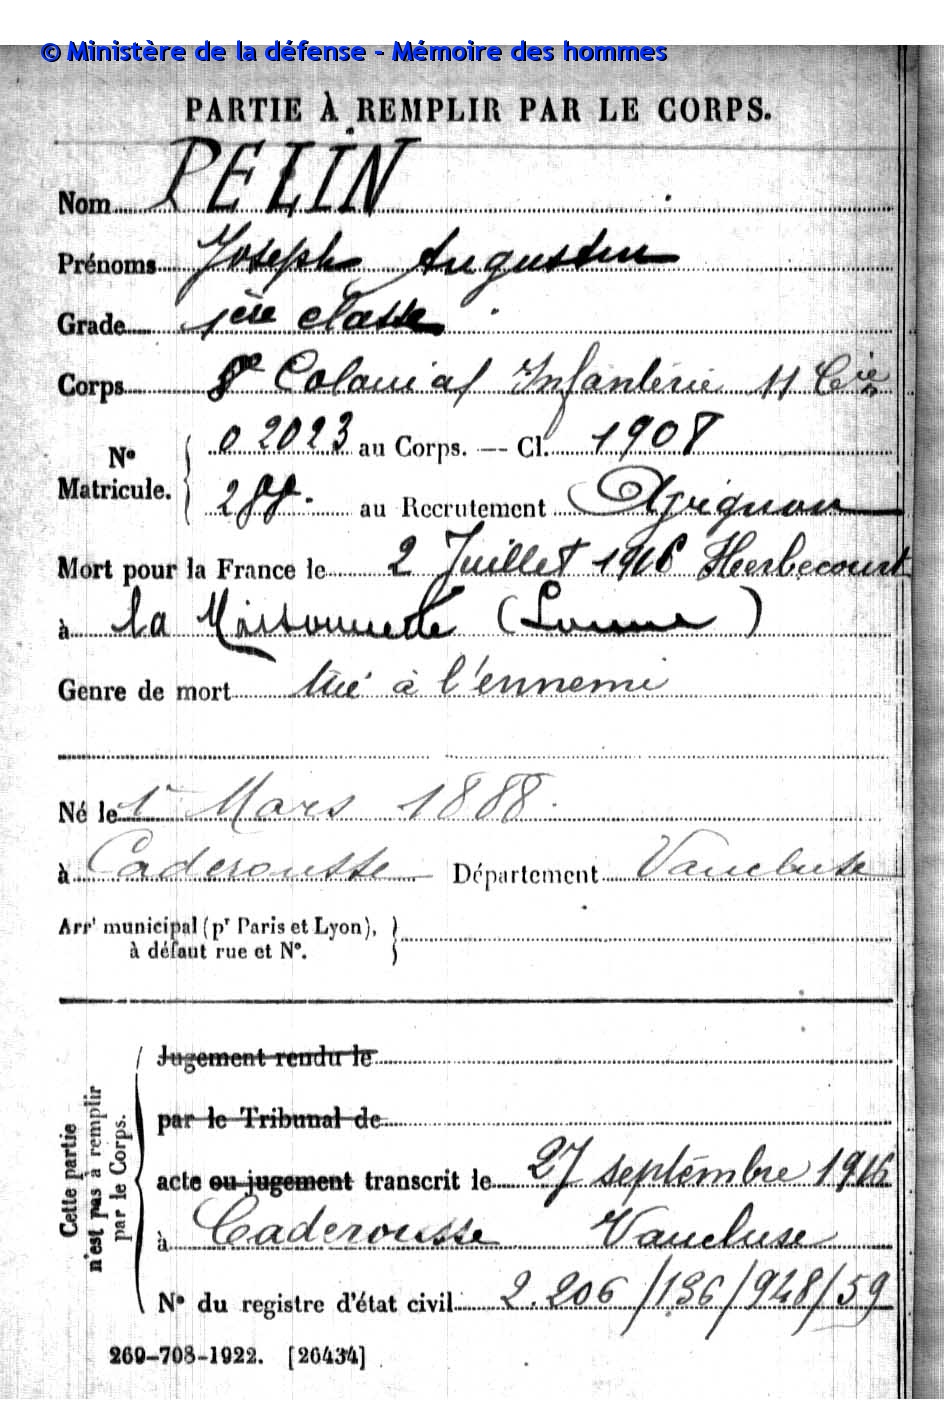 © Ministère de la défense - Mémoire des hommes
PARTIE À REMPLIR PAR LE CORPS.
Nom PELIN
Prénoms Joseph Augustin
Grade 1ère classe
Corps 8e Colonial Infanterie 11 Cie
No Matricule. { 02023 au Corps. — Cl. 1908
au Recrutement Avignon
Mort pour la France le 2 Juillet 1916 Herbecourt
à la Maisonnette (Somme)
Genre de mort tué à l'ennemi
Né le 1r Mars 1888
à Caderousse Département Vaucluse
Arrt municipal (pr Paris et Lyon),
à défaut rue et No.
Cette partie n'est pas à remplir par le Corps.
Jugement rendu le
par le Tribunal de
acte ou jugement transcrit le 27 septembre 1916
à Caderousse Vaucluse
No du registre d'état civil 2.206/136/948/59
269-708-1922. [26434]